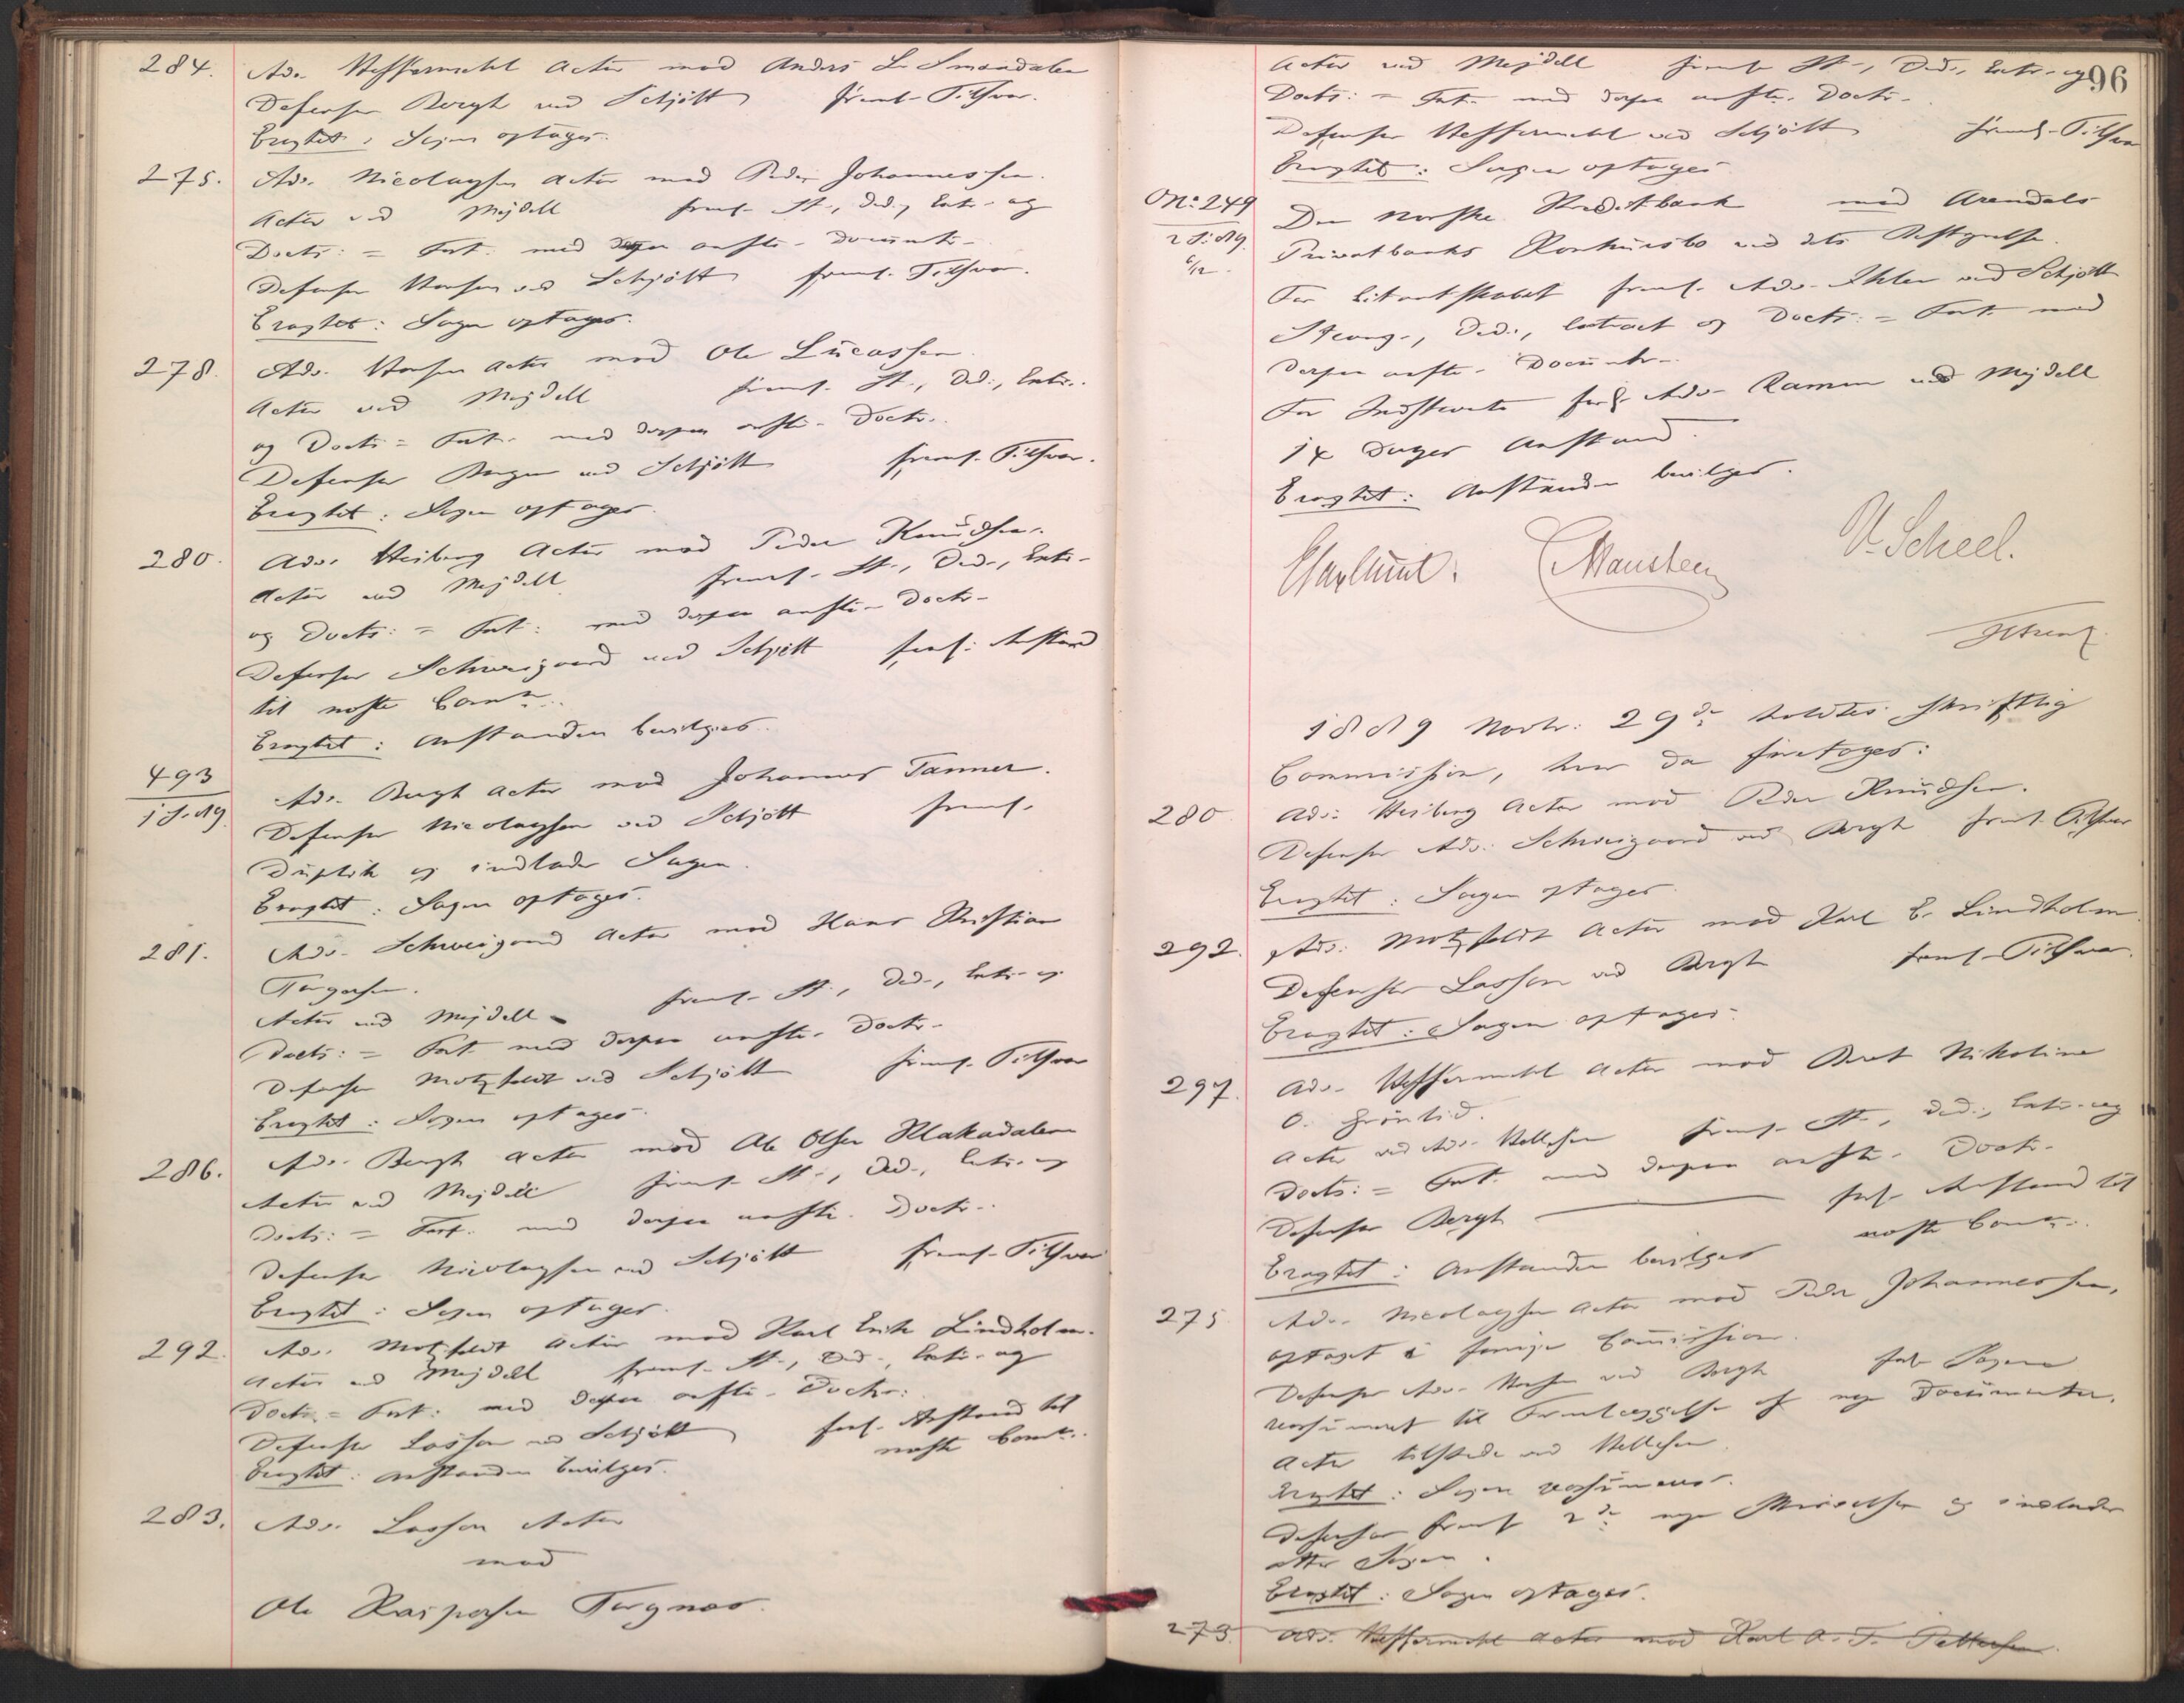 284. Adv. Steffermehl Actor mod Anders L. Smaadalen
Defensor Bergh ved Schjött freml. Tilsvar.
Eragtet: Sagen optages.
275. Adv. Nicolaysen Actor mod Peder Johannessen.
Actor ved Mejdell freml. St., Ded., Extr. og
Docts: = Fort. med deres anftr. Documtr.
Defensor Hansen ved Schjött freml. Tilsvar.
Eragtet: Sagen optages.
278. Adv. Hansen Actor mod Ole Lucassen
Actor ved Mejdell freml. St., Ded., Extr.
og Docts = Fort. med deres anftr. Doctr.
Defensor ved Schjött freml. Tilsvar.
Eragtet: Sagen optages.
280. Adv. Heiberg Actor mod Peder Knudsen.
Actor ved Mejdell freml. St., Ded., Extr.
og Docts: = Fort. med deres anftr. Doctr.
Defensor Schweigaard ved Schjött forl. Anstand
til næste Comn.
Eragtet: Anstanden bevilges.
493
1 S. 89. Adv. Bergh Actor mod Johannes Tanner.
Defensor Nicolaysen ved Schjött freml.
Duplik og indlader Sagen.
Eragtet: Sagen optages.
281. Adv. Schweigaard Actor mod Hans Kristian
Torgersen.
Actor ved Mejdell freml. St., Ded., Extr. og
Docts: = Fort. med deres anftr. Doctr.
Defensor Motzfeldt ved Schjött freml. Tilsvar
Eragtet: Sagen optages.
286. Adv. Bergh Actor mod Ole Olsen Klakadalen
Actor ved Mejdell freml. St., Ded., Extr. og
Docts: = Fort. med deres anftr. Doctr.
Defensor Nicolaysen ved Schjött freml. Tilsvar
Eragtet: Sagen optages.
292. Adv. Motzfeldt Actor mod Karl Erik Lindholm.
Actor ved Mejdell freml. St., Ded., Extr. og
Docts. = Fort. med deres anftr. Doctr.
Defensor Lasson ved Schjött forl. Anstand til
næste Comn.
Eragtet: Anstanden bevilges.
283. Adv. Lasson Actor
mod
Ole Kaspersen Tørgnæs.
96
Actor ved Mejdell freml. St., Ded., Extr. og
Docts: = Fort. med deres anftr. Doctr.
Defensor Steffermehl ved Schjött freml. Tilsvar
Eragtet: Sagen optages
No. 249
2 S. 89.
6/12. Den norske Kreditbank mod Arendals
Privatbanks Konkursbo ved dets Bestyrelse.
For Citantskabet freml. Adv. Ihlen ved Schjött
Stevng., Ded., Extract og Docts: = Fort. med
deres anftr. Documtr.
For Indstevnte forl. Adv. Ramm ved Mejdell
14 Dages Anstand.
Eragtet: Anstanden bevilges.
C. Hansteen
V. Scheel.
1889 Novbr. 29de holdtes skriftlig
Commission, hvor da foretoges:
280 Adv. Heiberg Actor mod Peder Knudsen.
Defensor Adv. Schweigaard ved Bergh freml. Tilsvar
Eragtet: Sagen optages.
292. Adv. Motzfeldt Actor mod Karl E. Lindholm.
Defensor Lasson ved Bergh freml. Tilsvar.
Eragtet: Sagen optages.
297. Adv. Steffermehl Actor mod Beret Nikoline
O. Grönlid.
Actor ved Adv. Kellesen freml. St., Ded., Extr. og
Docts: = Fort. med deres anftr. Doctr.
Defensor Bergh forl. Anstand til
næste Comn.
Eragtet: Anstanden bevilges
275 Adv. Nicolaysen Actor mod Peder Johannessen,
optaget i forrige Commission.
Defensor Adv. Hansen ved Bergh forl. Sagen
reassumeret til Fremlæggelse af nye Documenter.
Actor tilstede ved Kellesen.
Eragtet: Sagen reassumeres.
Defensor freml. 2de nye og indlader
atter Sagen.
Eragtet: Sagen optages.
273. Adv. Steffermehl Actor mod Karl A. T. Pettersen.